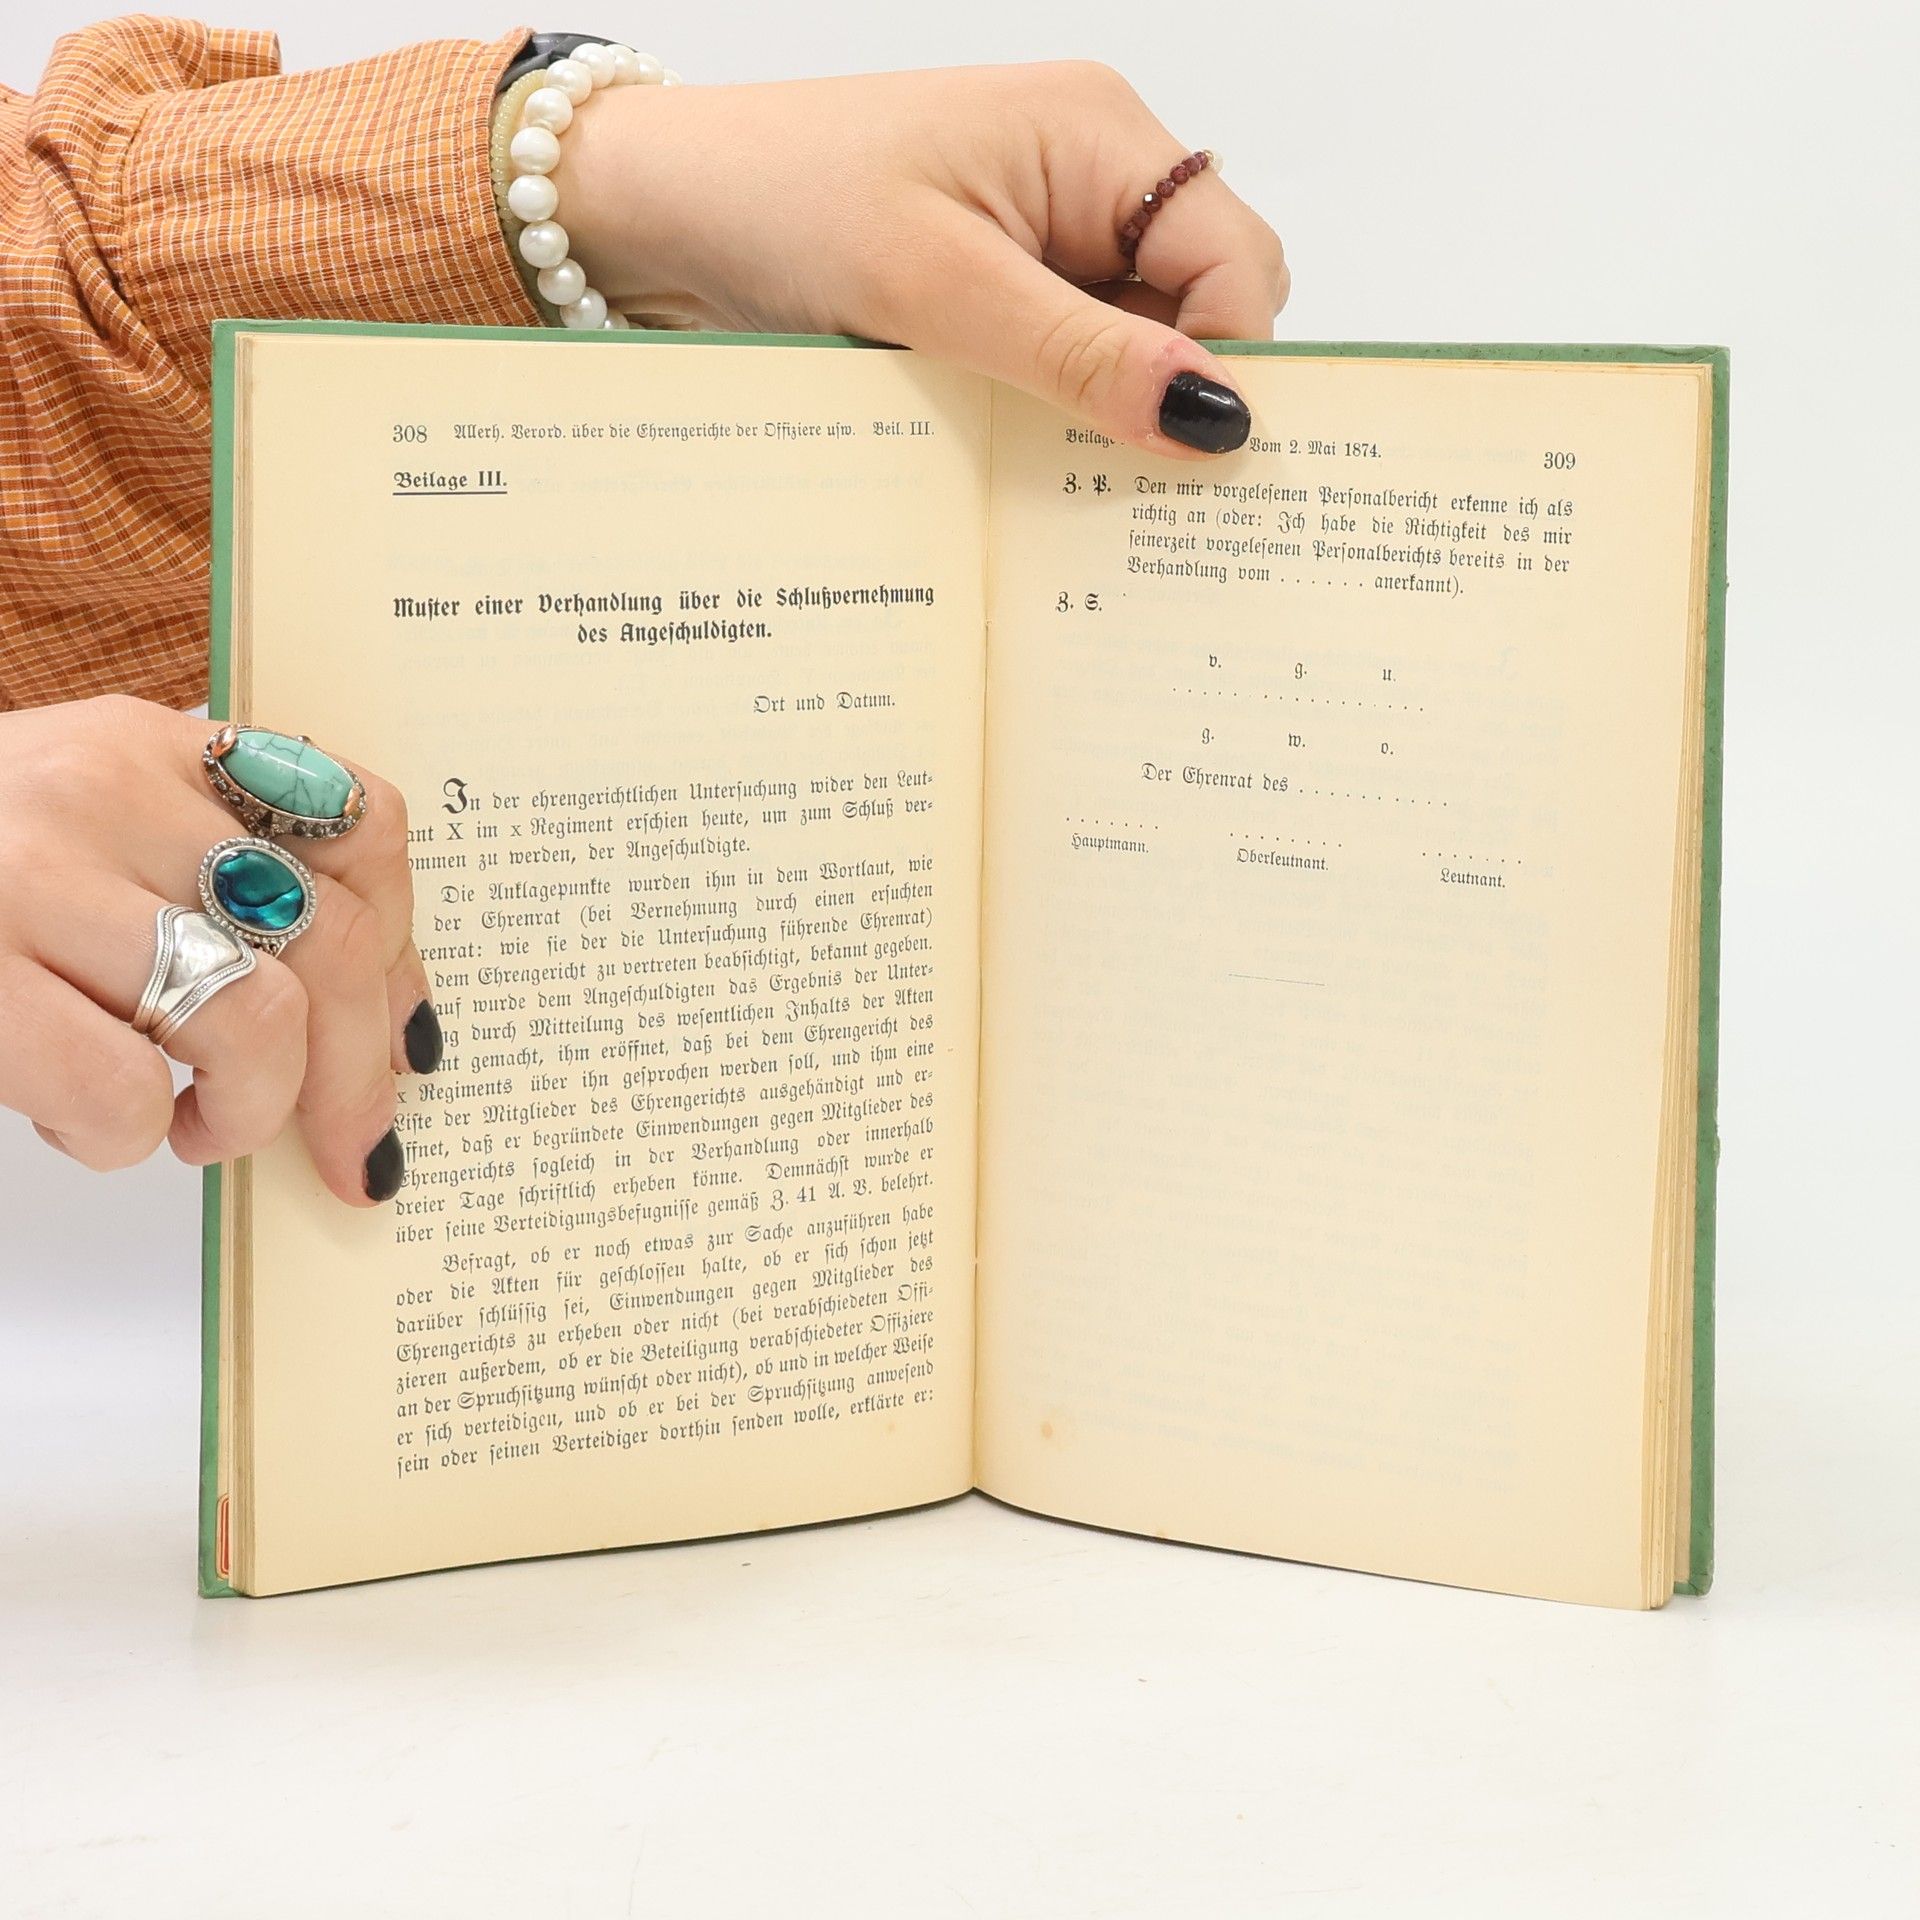 308 Allerh. Verord. über die Ehrengerichte der Offiziere uſw. Beil. III.
Beilage III.
Muſter einer Verhandlung über die Schlußvernehmung
des Angeſchuldigten.
Ort und Datum.
In der ehrengerichtlichen Unterſuchung wider den Leut-
ant X im x Regiment erſchien heute, um zum Schluß ver-
ommen zu werden, der Angeſchuldigte.
Die Anklagepunkte wurden ihm in dem Wortlaut, wie
der Ehrenrat (bei Vernehmung durch einen erſuchten
renrat: wie ſie der die Unterſuchung führende Ehrenrat)
dem Ehrengericht zu vertreten beabſichtigt, bekannt gegeben.
auf wurde dem Angeſchuldigten das Ergebnis der Unter-
ng durch Mitteilung des weſentlichen Inhalts der Akten
nt gemacht, ihm eröffnet, daß bei dem Ehrengericht des
x Regiments über ihn geſprochen werden ſoll, und ihm eine
Liſte der Mitglieder des Ehrengerichts ausgehändigt und er-
ffnet, daß er begründete Einwendungen gegen Mitglieder des
Ehrengerichts ſogleich in der Verhandlung oder innerhalb
dreier Tage ſchriftlich erheben könne. Demnächſt wurde er
über ſeine Verteidigungsbefugniſſe gemäß Z. 41 A. V. belehrt.
Befragt, ob er noch etwas zur Sache anzuführen habe
oder die Akten für geſchloſſen halte, ob er ſich ſchon jetzt
darüber ſchlüſſig ſei, Einwendungen gegen Mitglieder des
Ehrengerichts zu erheben oder nicht (bei verabſchiedeten Offi-
zieren außerdem, ob er die Beteiligung verabſchiedeter Offiziere
an der Spruchſitzung wünſcht oder nicht), ob und in welcher Weiſe
er ſich verteidigen, und ob er bei der Spruchſitzung anweſend
ſein oder ſeinen Verteidiger dorthin ſenden wolle, erklärte er:
Beilage Vom 2. Mai 1874. 309
Z. P. Den mir vorgeleſenen Perſonalbericht erkenne ich als
richtig an (oder: Ich habe die Richtigkeit des mir
ſeinerzeit vorgeleſenen Perſonalberichts bereits in der
Verhandlung vom . . . . . . anerkannt).
Z. S.
v. g. u.
. . . . . . . . . . . . . .
g. w. o.
Der Ehrenrat des . . . . . . . . . .
. . . . . . . . . . . . . . . . . . . . .
Hauptmann. Oberleutnant. Leutnant.